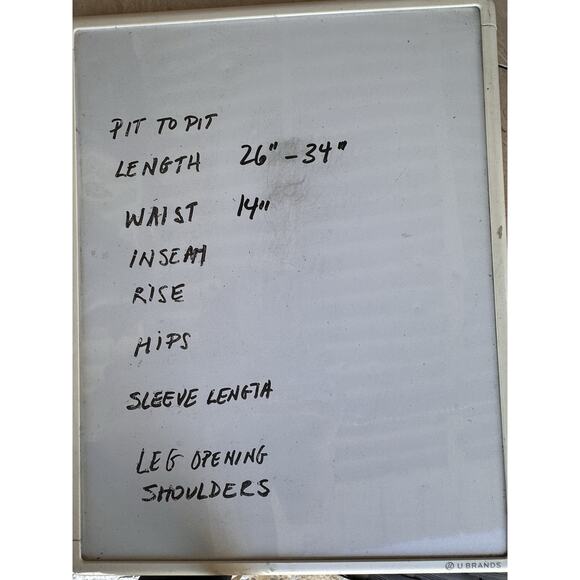 PIT TO PIT
LENGTH 26" - 34"
WAIST 14"
INSEAM
RISE
HiPS
SLEEVE LENGTH
LEG OPENING
SHOULDERS
U BRANDS